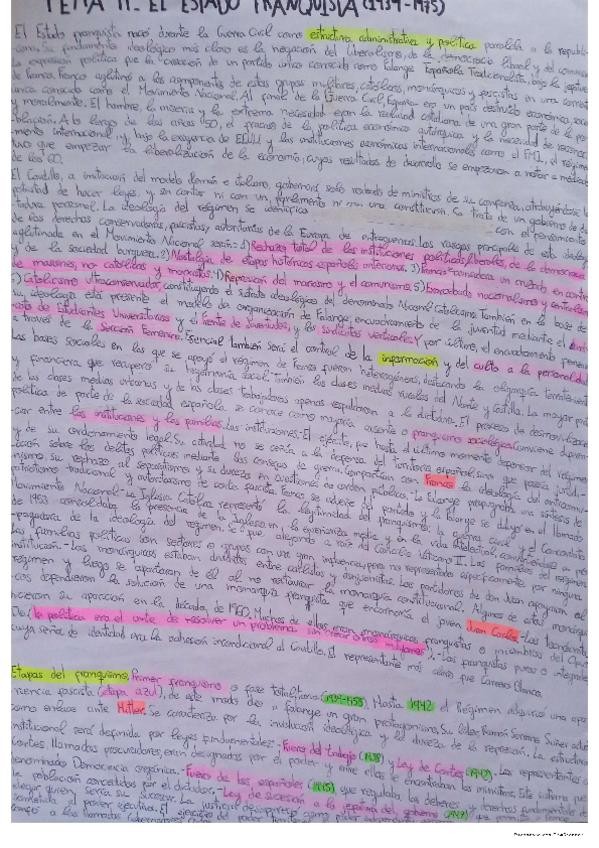 TEMA 11. EL ESTADO FRANQUISTA (1939-1975)
El Estado franquista nació durante la Guerra Civil como estructura administrativa y política paralela a la republi-
cana. Su fundamento ideológico más claro es la negación del liberalismo, de la democracia liberal y del comunismo
La expresión política fue la creación de un partido único conocido como Falange Española Tradicionalista, bajo la jefatura
de Franco. Franco aglutinó a los componentes de estos grupos militares, católicos, monárquicos y fascistas en una corriente
única conocida como el Movimiento Nacional. Al final de la Guerra Civil, España era un país destruido económica, social
y moralmente. El hambre, la miseria y la extrema necesidad eran la realidad cotidiana de una gran parte de la po-
blación. A lo largo de los años 50, el fracaso de la política económica autárquica y la necesidad de
mento internacional y, bajo la exigencia de EEUU y las instituciones económicas internacionales como el FMI, el régimen
tuvo que empezar la liberalización de la economía, cuyos resultados de desarrollo se empezaron a notar a mediados
de los 60.
El Caudillo, a imitación del modelo alemán e italiano, gobernará solo rodeado de ministros de su compañía, atribuyéndose la
potestad de hacer leyes, y sin contar ni con un parlamento ni con una constitución. Se trata de un gobierno de dic-
tadura personal. La ideología del régimen se identifica con el pensamiento
de las derechas conservadoras, fascistas y autoritarias de la Europa de entreguerras. Los rasgos principales de esta ideología
aglutinada en el Movimiento Nacional serán: 1) Rechazo total de las instituciones políticas liberales, de la democracia
y de la sociedad burguesa. 2) Nostalgia de etapas históricas españolas anteriores. 3) Franco considera un cruzado en contra
de masones, no católicos y marxistas. 4) Represión del marxismo y el comunismo. 5) Exacerbado nacionalismo y centralismo
Catolicismo Ultraconservador, constituyendo el sustrato ideológico del denominado Nacional Catolicismo. También en la base de
su ideología está presente el modelo de organización de Falange, encuadramiento de la juventud mediante el Sindi-
cato de Estudiantes Universitarios y el Frente de Juventudes, y los sindicatos verticales. Y por último, el encuadramiento femenino
a través de la Sección Femenina. Esencial también será el control de la información y del culto a la personalidad
Las bases sociales en las que se apoyó el régimen de Franco fueron heterogéneas, destacando la oligarquía terrateniente
y financiera que recuperó su hegemonía social. También las clases medias rurales del Norte y Castilla. La mayor parte
de las clases medias urbanas y de las clases trabajadoras apenas respaldaron a la dictadura. El proceso de desmovilización
política de parte de la sociedad española se conoce como mayoría ausente o franquismo sociológico. Conviene diferen-
ciar entre las instituciones y las familias. Las instituciones:- El ejército, fue hasta el último momento defensor del régimen
y de su ordenamiento legal. Su actitud no se ceñía a la defensa del territorio español, sino que poseía juris-
dicción sobre los delitos políticos mediante los consejos de guerra. Compartían con Franco la ideología del anticomu-
nismo, su rechazo al separatismo y su dureza en cuestiones de orden público.- La Falange propugnaba una síntesis de
patriotismo tradicional y autoritarismo de corte fascista. Franco, se adueñó del partido y la Falange se diluyó en el llamado
Movimiento Nacional.- La Iglesia Católica representó la legitimidad del franquismo, la guerra civil y el Concordato
de 1953 consolidaba la presencia de la Iglesia en la enseñanza media y en la vida intelectual,
pagadora de la ideología del régimen. Se fue alejando a raíz del Concilio Vaticano II.
Las familias políticas son sectores o grupos con una gran influencia, pero no representados específicamente por ninguna
institución.- Los monárquicos estaban divididos entre carlistas y donjuanistas. Los partidarios de don Juan apoyaron al
régimen y luego se apartaron de él al no restaurar la monarquía constitucional. Algunos de estos monárqui-
cos defendieron la solución de una monarquía franquista que encarnaría el joven Juan Carlos.- Los tecnócratas
hicieron su aparición en la década de 1960. Muchos de ellos eran monárquicos franquistas o miembros del Opus
Dei (la política era el arte de resolver un problema sin crear otros mayores).- Los franquistas puros o integristas
cuya seña de identidad era la adhesión incondicional al Caudillo. El representante más claro fue Carrero Blanco.
Etapas del franquismo. Primer franquismo o fase totalitaria (1939-1959). Hasta 1942 el Régimen adquirió una apa-
riencia fascista (etapa azul), de este modo dio a falange un gran protagonismo. Su líder Ramón Serrano Suñer
como enlace ante Hitler. Se caracteriza por la involución ideológica y el dureza de la represión. La estructura
institucional será definida por leyes fundamentales:- Fuero del trabajo (1938) y Ley de Cortes (1942).- Los representantes a
Cortes llamados procuradores, eran designados por el poder y entre ellos se encontraban los ministros. Este sistema fue
denominado Democracia orgánica.- Fuero de los españoles (1945) que regulaba los deberes y derechos fundamentales de
la población concedidos por el dictador.- Ley de sucesión a la jefatura del gobierno (1947)
elegir quien sería su sucesor. La